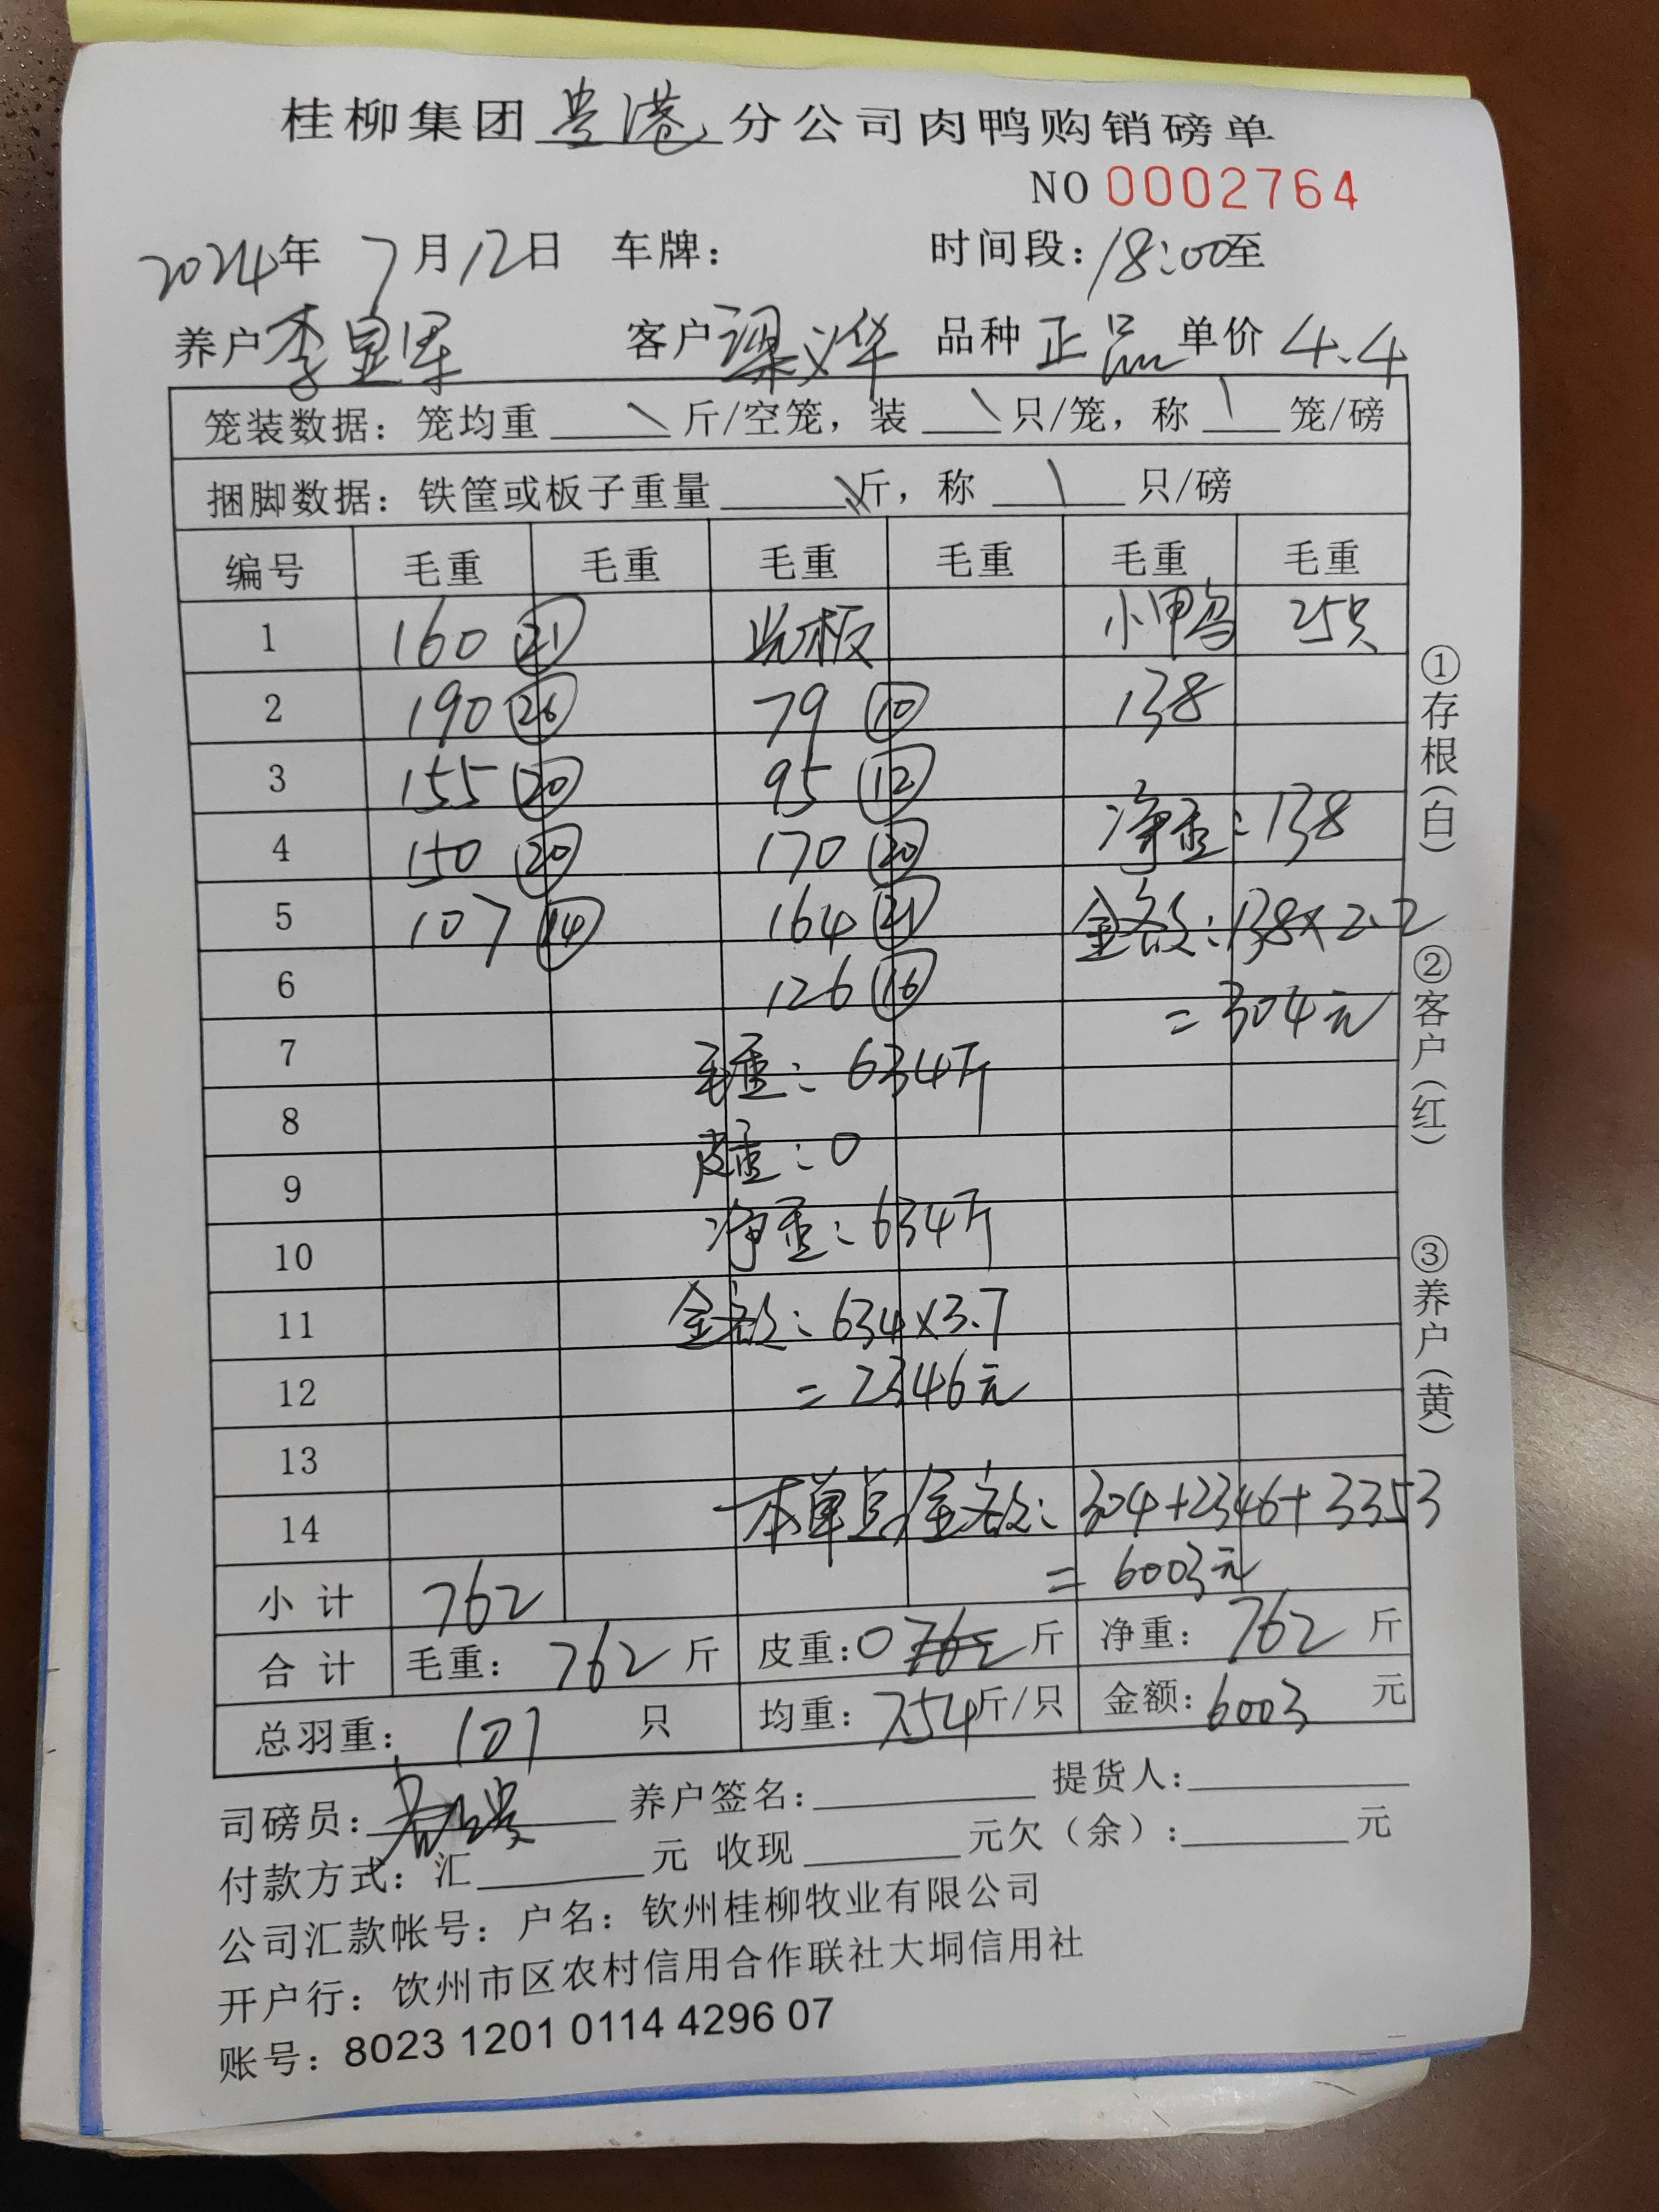 桂柳集团贵港分公司肉鸭购销磅单
NO 0002764
2024年 7月12日 车牌： 时间段：18:00至
养户李 客户梁义华 品种 正品 单价 4.4
笼装数据：笼均重 \ 斤/空笼，装 \ 只/笼，称 \ 笼/磅
捆脚数据：铁筐或板子重量 \ 斤，称 \ 只/磅
编号 毛重 毛重 毛重 毛重 毛重 毛重
1 160 (21) 板 小鸭 25只
2 190 (26) 79 (10) 138
3 155 (20) 95 (12)
4 150 (20) 170 (20) 净重：138
5 107 (14) 164 (21) 金额：138×2.2
6 126 (16) =304元
7 毛重：634斤
8 皮重：0
9
10 净重：634斤
11 金额：634×3.7
12 =2346元
13
14 本单总金额：304+2346+3353
小计 762 =6003元
合计 毛重：762斤 皮重：0 762 斤 净重：762 斤
总羽重：101 只 均重：7.54斤/只 金额：6003 元
司磅员： 养户签名： 提货人：
付款方式：汇 元 收现 元欠（余）： 元
公司汇款帐号：户名：钦州桂柳牧业有限公司
开户行：钦州市区农村信用合作联社大垌信用社
账号：8023 1201 0114 4296 07
①存根(白)
②客户(红)
③养户(黄)